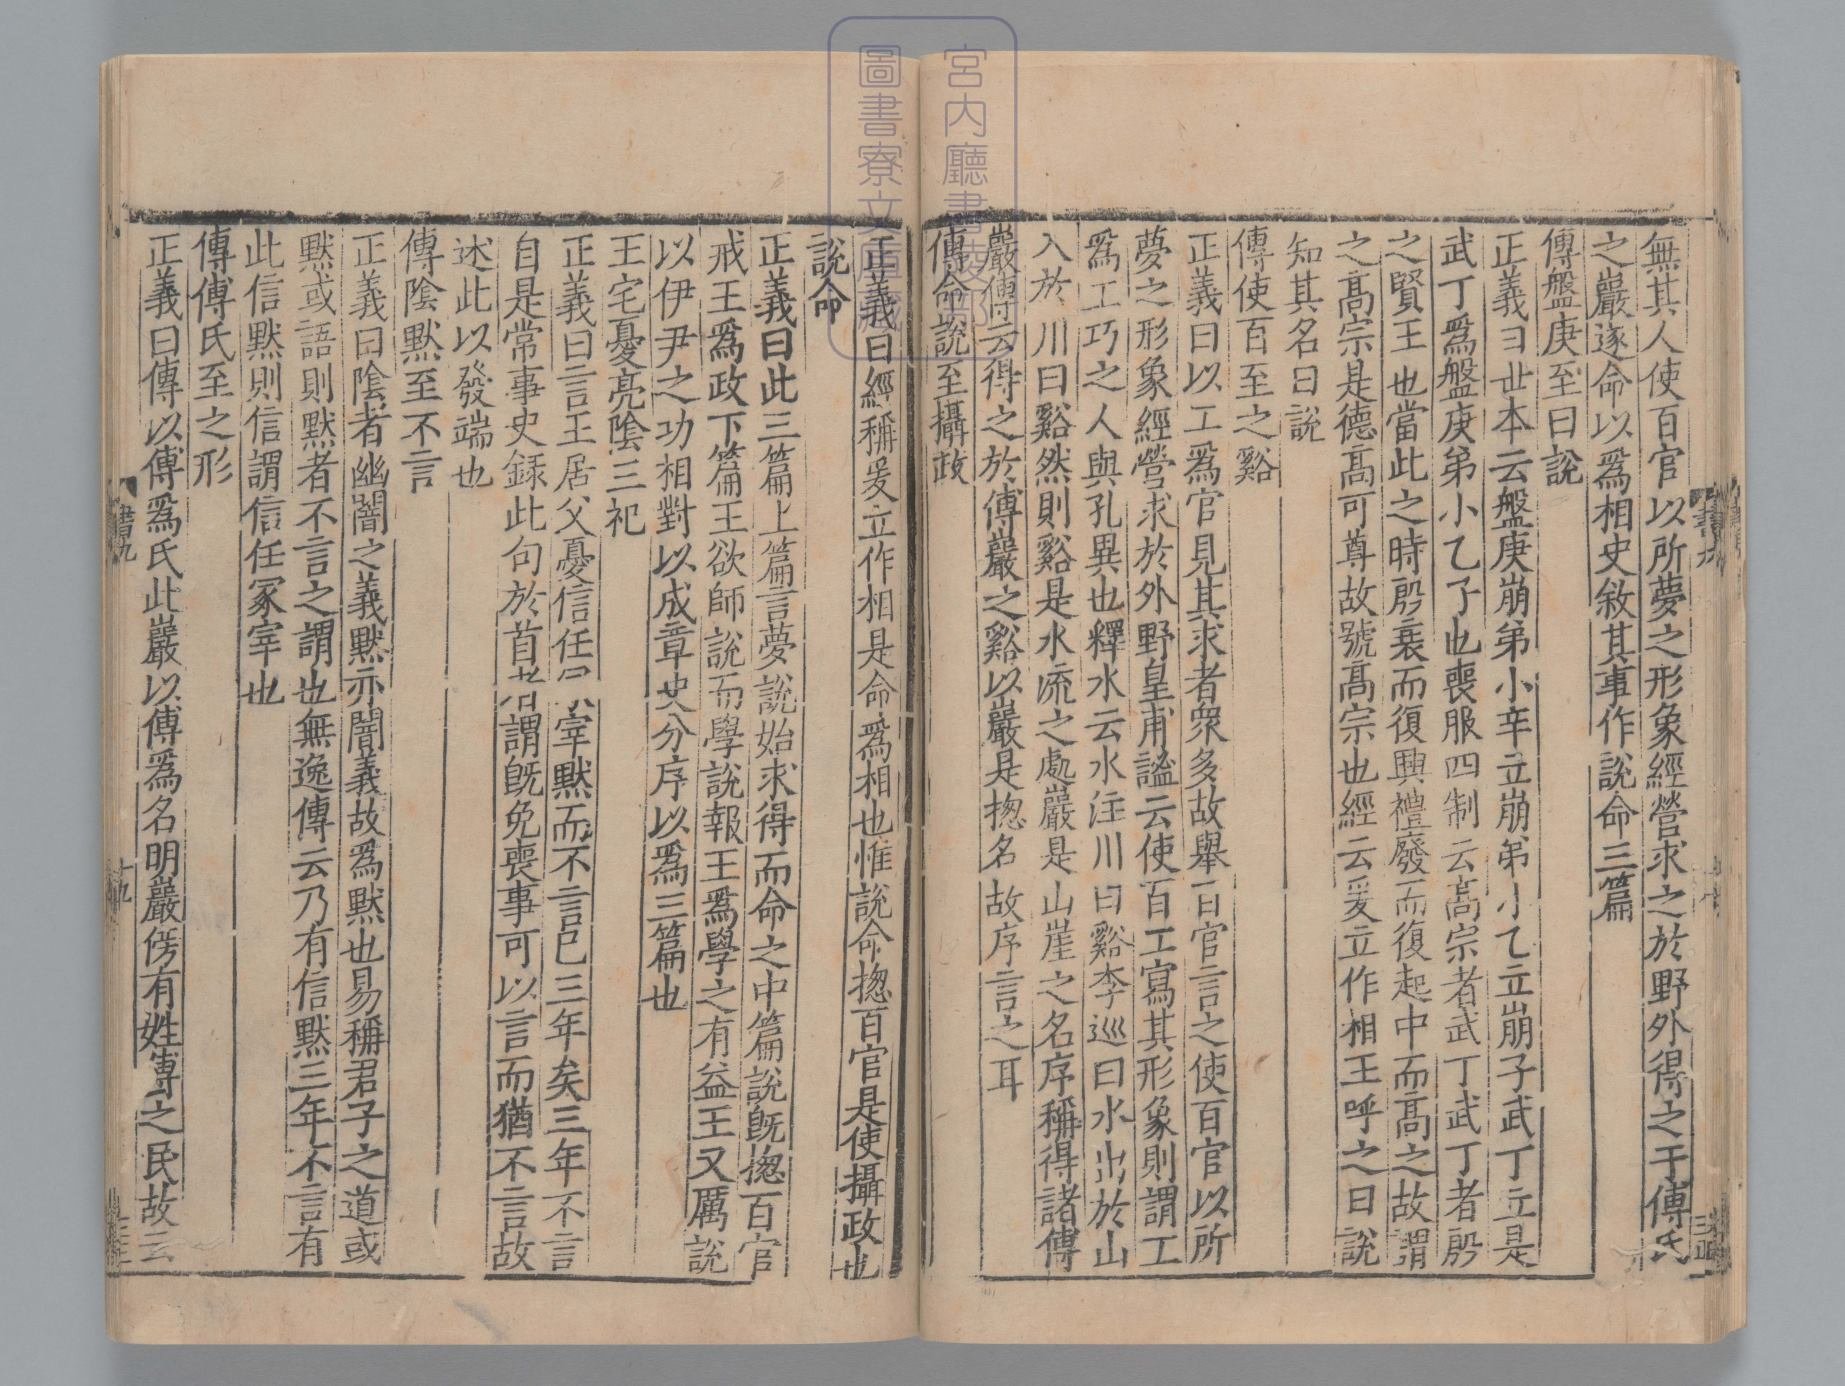 無其人使百官以所夢之形象經營求之於野外得之于傅氏
之巖遂命以爲相史敘其事作說命三篇
傳盤庚至曰說
正義曰世本云盤庚崩弟小辛立崩弟小乙立崩子武丁立是
武丁爲盤庚弟小乙子也喪服四制云髙宗者武丁武丁者殷
之賢王也當此之時殷衰而復興禮廢而復起中而髙之故謂
之髙宗是德髙可尊故號髙宗也經云爰立作相王呼之曰說
知其名曰說
傳使百至之谿
正義曰以工爲官見其求者衆多故舉百官言之使百官以所
夢之形象經營求於外野皇甫謐云使百工寫其形象則謂工
爲工巧之人與孔異也釋水云水注川曰谿李巡曰水出於山
入於川曰谿然則谿是水流之處巖是山崖之名序稱得諸傅
巖傳云得之於傅巖之谿以巖是揔名故序言之耳
傳命說至攝政
正義曰經稱爰立作相是命爲相也惟說命揔百官是使攝政也
說命
正義曰此三篇上篇言夢說始求得而命之中篇說旣揔百官
戒王爲政下篇王欲師說而學說報王爲學之有益王又厲說
以伊尹之功相對以成章史分序以爲三篇也
王宅憂亮陰三祀
正義曰言王居父憂信任冢宰黙而不言已三年矣三年不言
自是常事史録此句於首者謂旣免喪事可以言而猶不言故
述此以發端也
傳陰黙至不言
正義曰陰者幽闇之義黙亦闇義故爲黙也易稱君子之道或
黙或語則黙者不言之謂也無逸傳云乃有信黙三年不言有
此信黙則信謂信任冢宰也
傳傅氏至之形
正義曰傳以傅爲氏此巖以傅爲名明巖傍有姓傅之民故云
書九
十九
宮内廳書陵部
圖書寮文庫